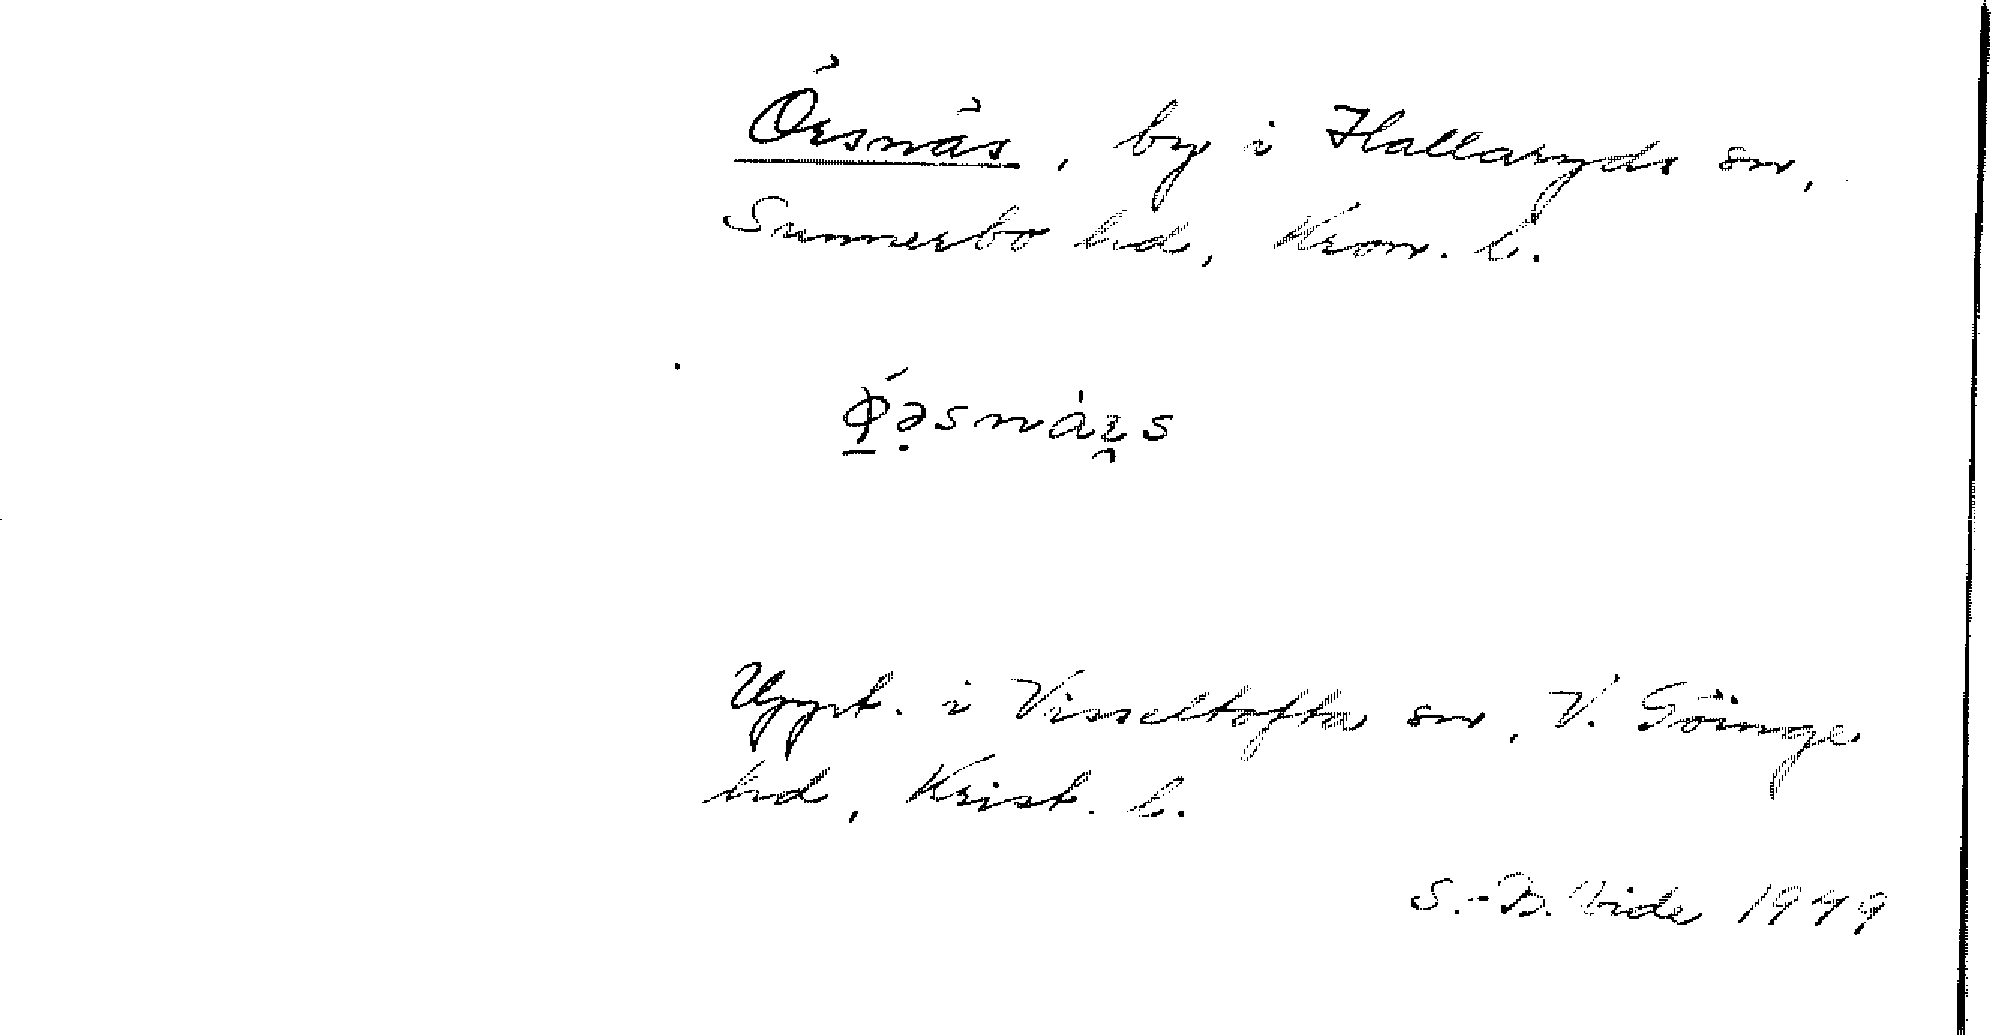 Örsnäs, by i Hallaryds sn,
Sunnerbo hd, Kron. l.
Uppt. i Visseltofta sn, V. Göinge
hd, Krist. l.
S.-B. Vide 1949